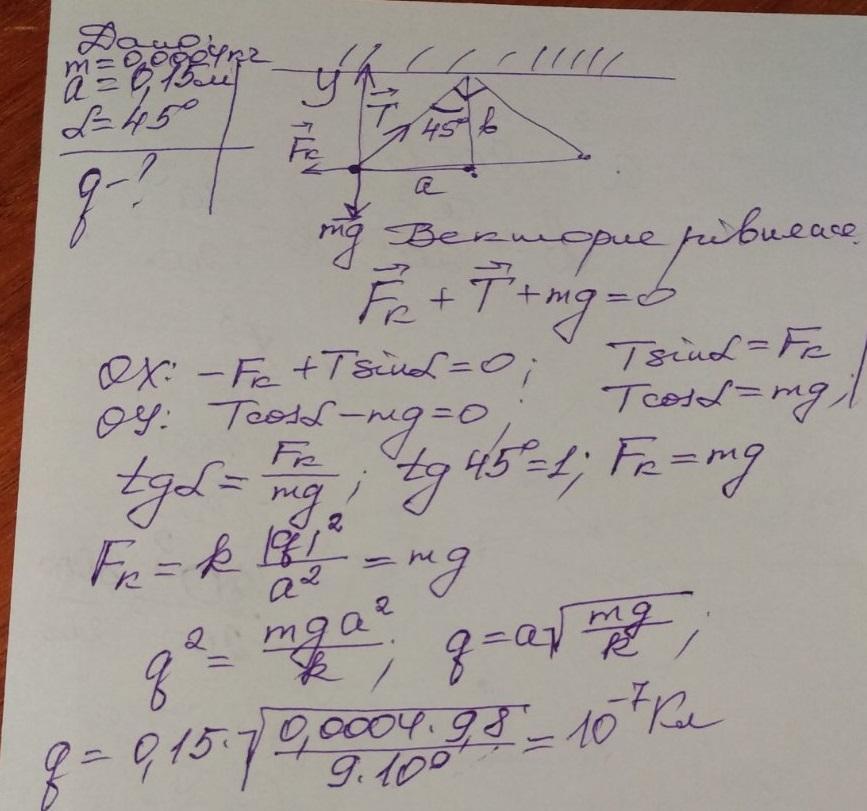 Дано:
m = 0,0004 кг
a = 0,15 м
α = 45°
q - ?
y
T
45°
b
Fк
a
mg
Векторне рівняння
Fк + T + mg = 0
OX: -Fк + T sinα = 0; T sinα = Fк
OY: T cosα - mg = 0; T cosα = mg;
tgα = Fк/mg; tg 45° = 1; Fк = mg
Fк = k |q|²/a² = mg
q² = mga²/k; q = a√(mg/k);
q = 0,15·√(0,0004·9,8/9·10⁹) = 10⁻⁷ Кл